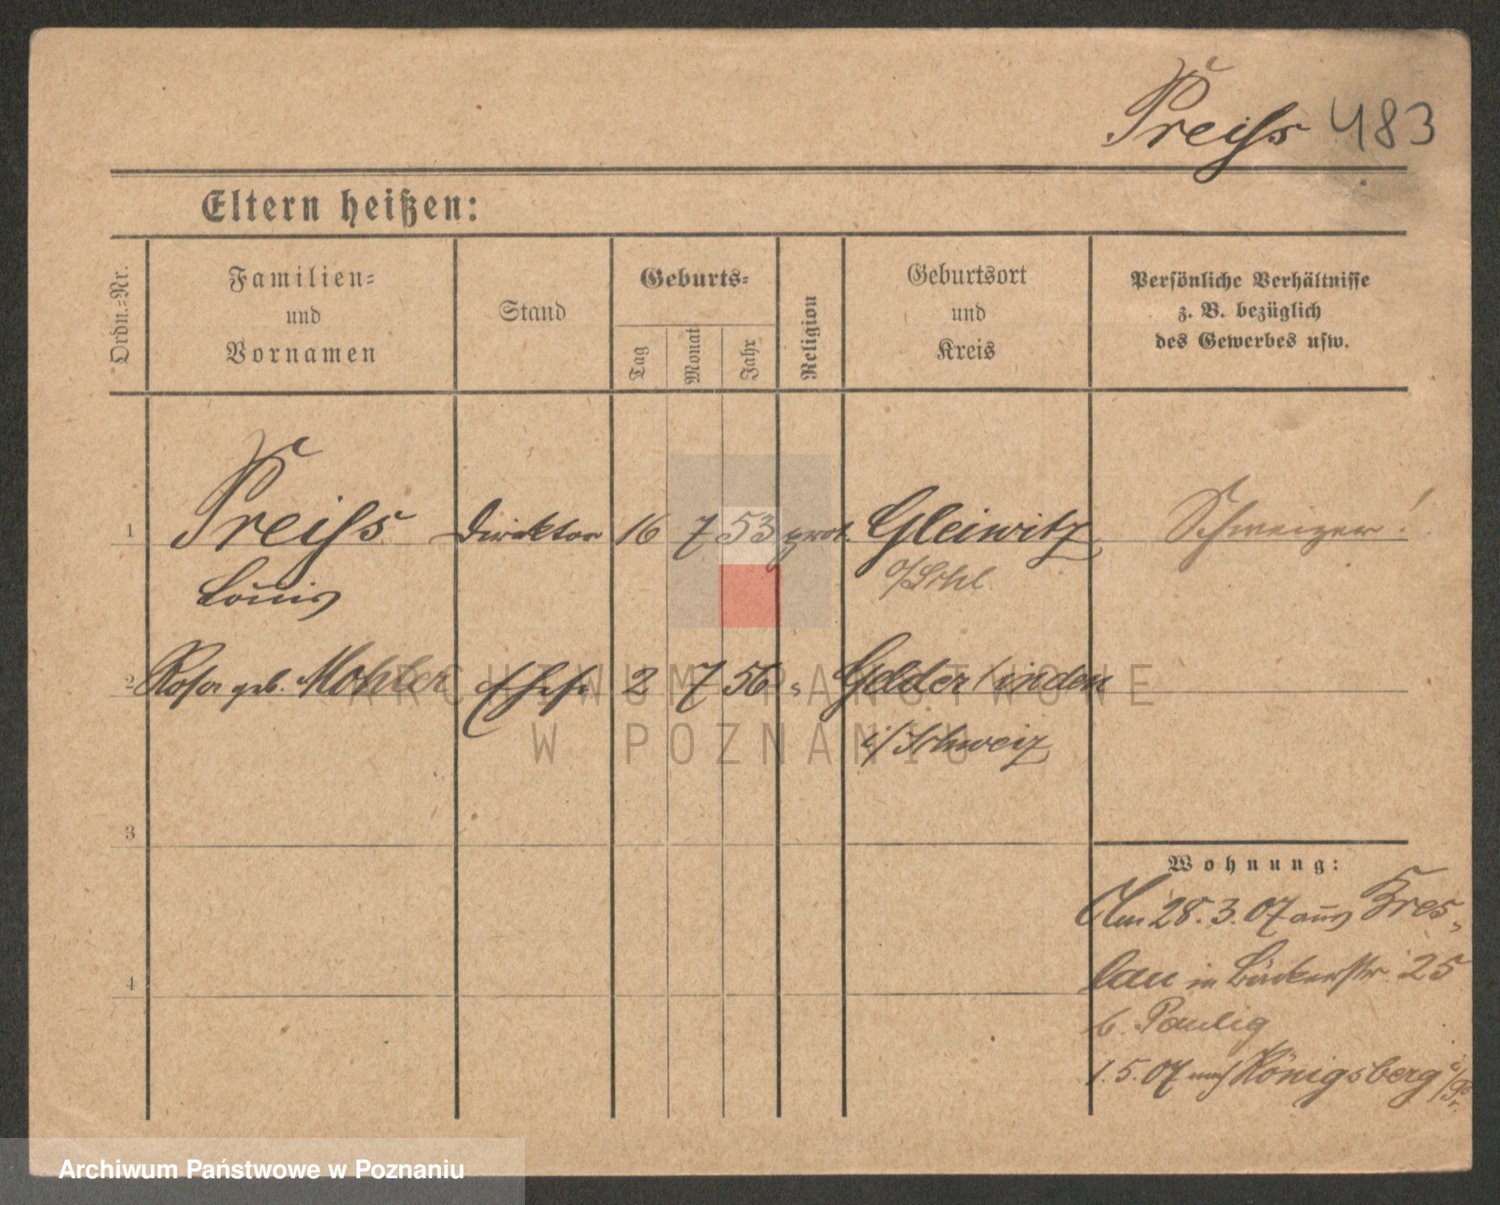 Preiss 483
Eltern heißen:
Ordn.-Nr.
Familien-
und
Vornamen
Stand
Geburts-
Tag
Monat
Jahr
Religion
Geburtsort
und
Kreis
Persönliche Verhältnisse
z. B. bezüglich
des Gewerbes usw.
1 Preiss Direktor 16 7 53 prot. Gleiwitz Schweizer!
Louis o/Schl.
2 Rosa geb. Mohler Ehefr 2 7 56 " Gelterkinden
i/Schweiz
3
Wohnung:
Am 28.3.07 aus Bres-
lau in Bäckerstr. 25
4
b. Paulig
1.5.07 nach Königsberg i/Pr.
ARCHIWUM PAŃSTWOWE
W POZNANIU
Archiwum Państwowe w Poznaniu